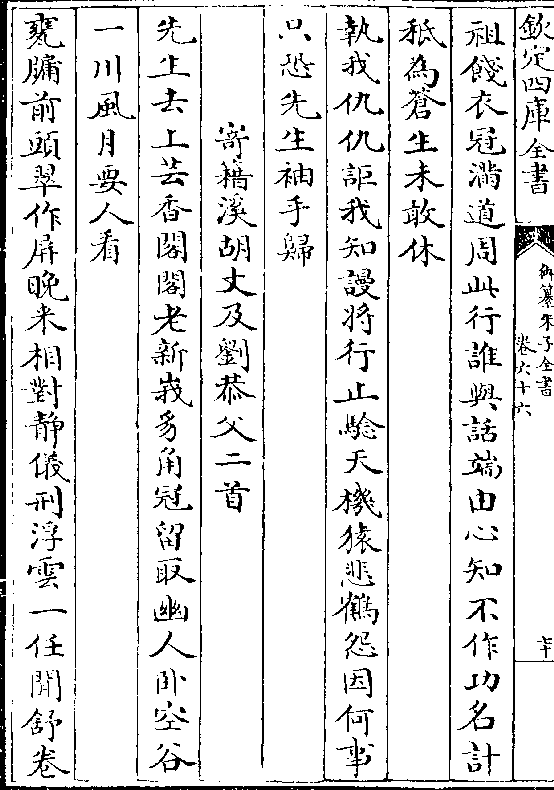 欽定四庫全書
御纂朱子全書
卷六十六
祖餞衣冠滿道周此行誰與話端由心知不作功名計
秪為蒼生未敢休
執我仇仇詎我知謾將行止驗天機猿悲鶴怨因何事
只恐先生袖手歸
寄籍溪胡丈及劉恭父二首
先生去上芸香閣閣老新峩豸角冠留取幽人卧空谷
一川風月要人看
甕牖前頭翠作屏晚來相對静儀刑浮雲一任閒舒卷